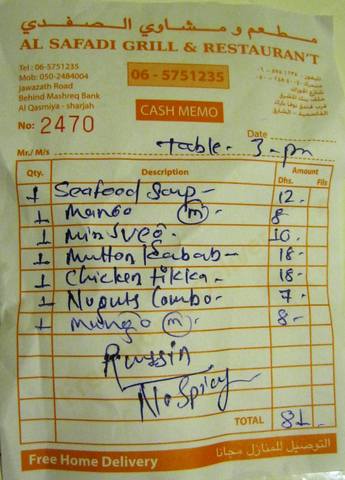 مطعم و مشاوي الصفدي
AL SAFADI GRILL & RESTAURAN'T
Tel : 06-5751235
Mob: 050-2484004
Jawazath Road
Behind Mashreq Bank
Al Qasmiya - sharjah
06 - 5751235
CASH MEMO
No: 2470
Date
Mr./ M/s table- 3-pm
Qty. Description Amount
Dhs. Fils
1 Seafood Soup- 12-
1 Mango (m)- 8-
1 10-
1 Mutton Kabab- 18-
1 Chicken tikka- 18-
1 Combo- 7-
1 Mango (m)- 8-
Russin
No Spicy
TOTAL 81-
Free Home Delivery التوصيل للمنازل مجانا